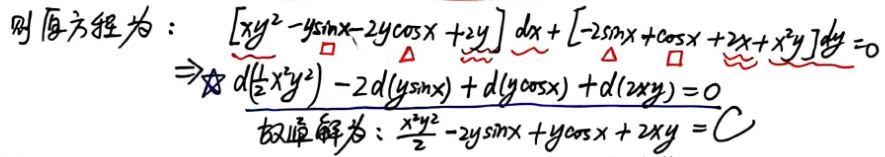 则原方程为： [xy² - ysinx - 2ycosx + 2y] dx + [-2sinx + cosx + 2x + x²y] dy = 0
⇒ ☆ d(½x²y²) - 2d(ysinx) + d(ycosx) + d(2xy) = 0
故通解为： x²y²/2 - 2ysinx + ycosx + 2xy = C